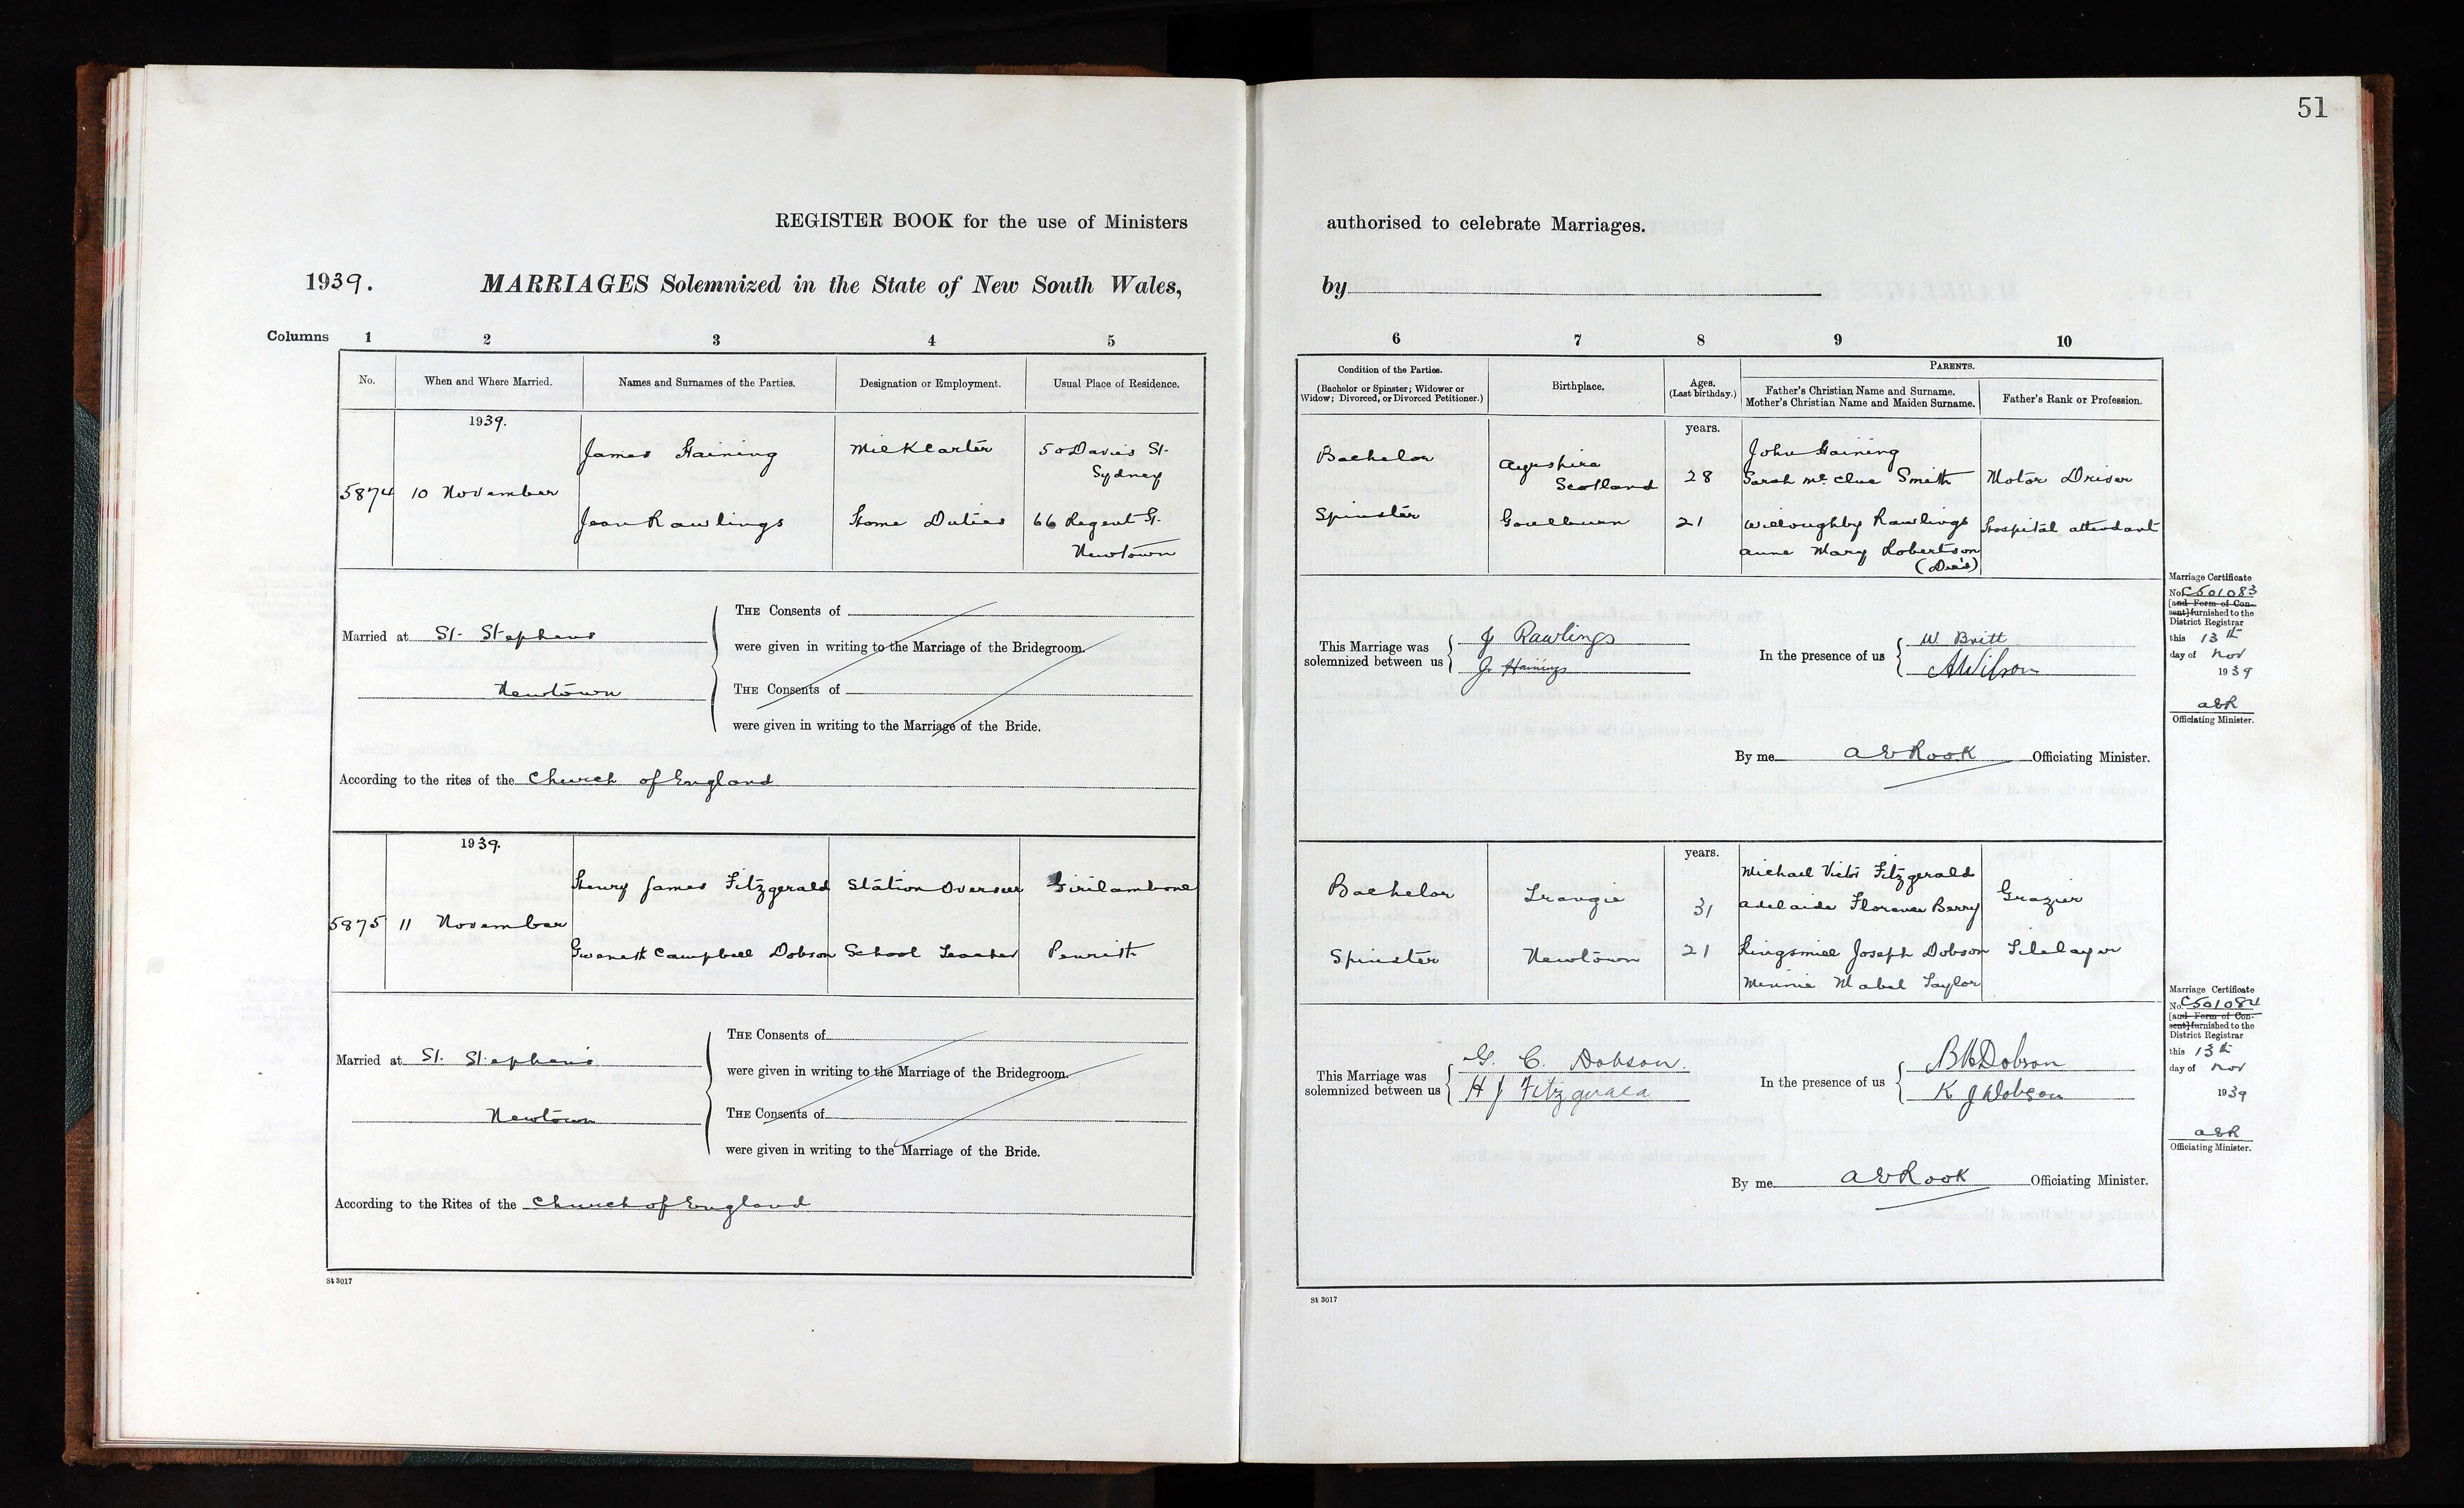 51
REGISTER BOOK for the use of Ministers authorised to celebrate Marriages.
1939. MARRIAGES Solemnized in the State of New South Wales, by
Columns 1 2 3 4 5 6 7 8 9 10
No. When and Where Married. Names and Surnames of the Parties. Designation or Employment. Usual Place of Residence.
Condition of the Parties.
(Bachelor or Spinster; Widower or
Widow; Divorced, or Divorced Petitioner.)
Birthplace.
Ages.
(Last birthday.)
PARENTS.
Father's Christian Name and Surname.
Mother's Christian Name and Maiden Surname.
Father's Rank or Profession.
1939.
5874 10 November
James Haining Milk Carter 50 Davies St.
Sydney
Jean Rawlings Home Duties 66 Regent St.
Newtown
years.
Bachelor Ayrshire
Scotland 28 John Haining
Sarah Mc Clue Smith Motor Driver
Spinster Goulburn 21 Willoughby Rawlings Hospital attendant
Anne Mary Robertson
(Dec'd)
Married at St. Stephens
Newtown
THE Consents of
were given in writing to the Marriage of the Bridegroom.
THE Consents of
were given in writing to the Marriage of the Bride.
According to the rites of the Church of England
This Marriage was
solemnized between us
J Rawlings
J. Haining
In the presence of us
W Britt
A Wilson
By me A E Rook Officiating Minister.
Marriage Certificate
No. C501083
[and Form of Con-
sent] furnished to the
District Registrar
this 13th
day of Nov
1939
AER
Officiating Minister.
1939.
5875 11 November
Henry James Fitzgerald Station Overseer Girilambone
Gweneth Campbell Dobson School Teacher Penrith
years.
Bachelor Trangie 31 Michael Victor Fitzgerald
Adelaide Florence Berry Grazier
Spinster Newtown 21 Kingsmill Joseph Dobson Tilelayer
Minnie Mabel Taylor
Married at St. Stephen's
Newtown
THE Consents of
were given in writing to the Marriage of the Bridegroom.
THE Consents of
were given in writing to the Marriage of the Bride.
According to the Rites of the Church of England
This Marriage was
solemnized between us
G. C. Dobson.
H J Fitzgerald
In the presence of us
Dobson
K J Dobson
By me A E Rook Officiating Minister.
Marriage Certificate
No. C501084
[and Form of Con-
sent] furnished to the
District Registrar
this 13th
day of Nov
1939
AER
Officiating Minister.
St 3017
St 3017